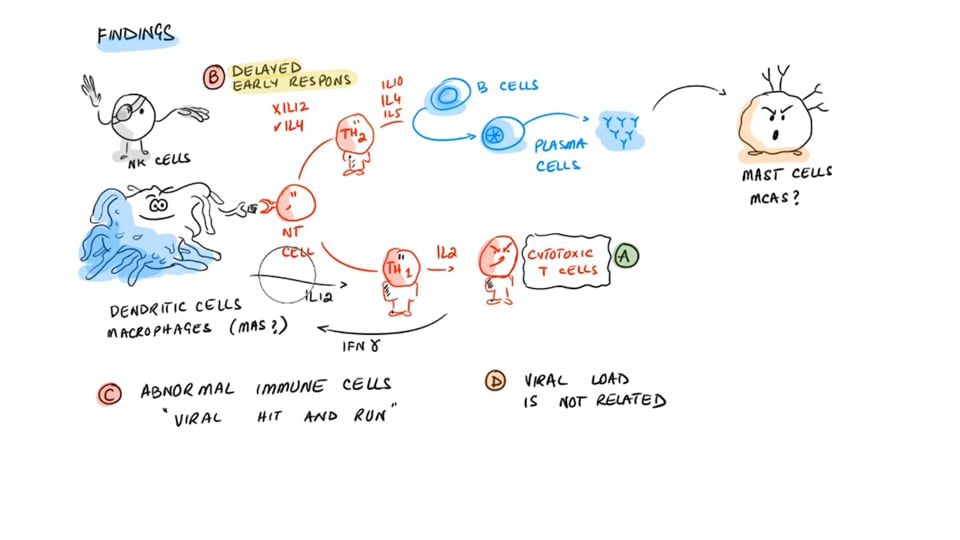 FINDINGS
B
DELAYED
EARLY RESPONS
XIL12
✓IL4
IL10
IL4
IL5
TH2
B CELLS
PLASMA
CELLS
NK CELLS
MAST CELLS
MCAS?
NT
CELL
TH1
IL2
CYTOTOXIC
T CELLS
A
IL12
DENDRITIC CELLS
MACROPHAGES (MAS?)
IFN γ
C
ABNORMAL IMMUNE CELLS
"VIRAL HIT AND RUN"
D
VIRAL LOAD
IS NOT RELATED